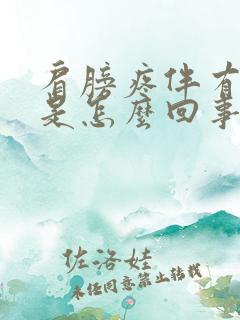 肩膀疼伴有
是怎麼回事
佐洛娃
未经同意禁止转载